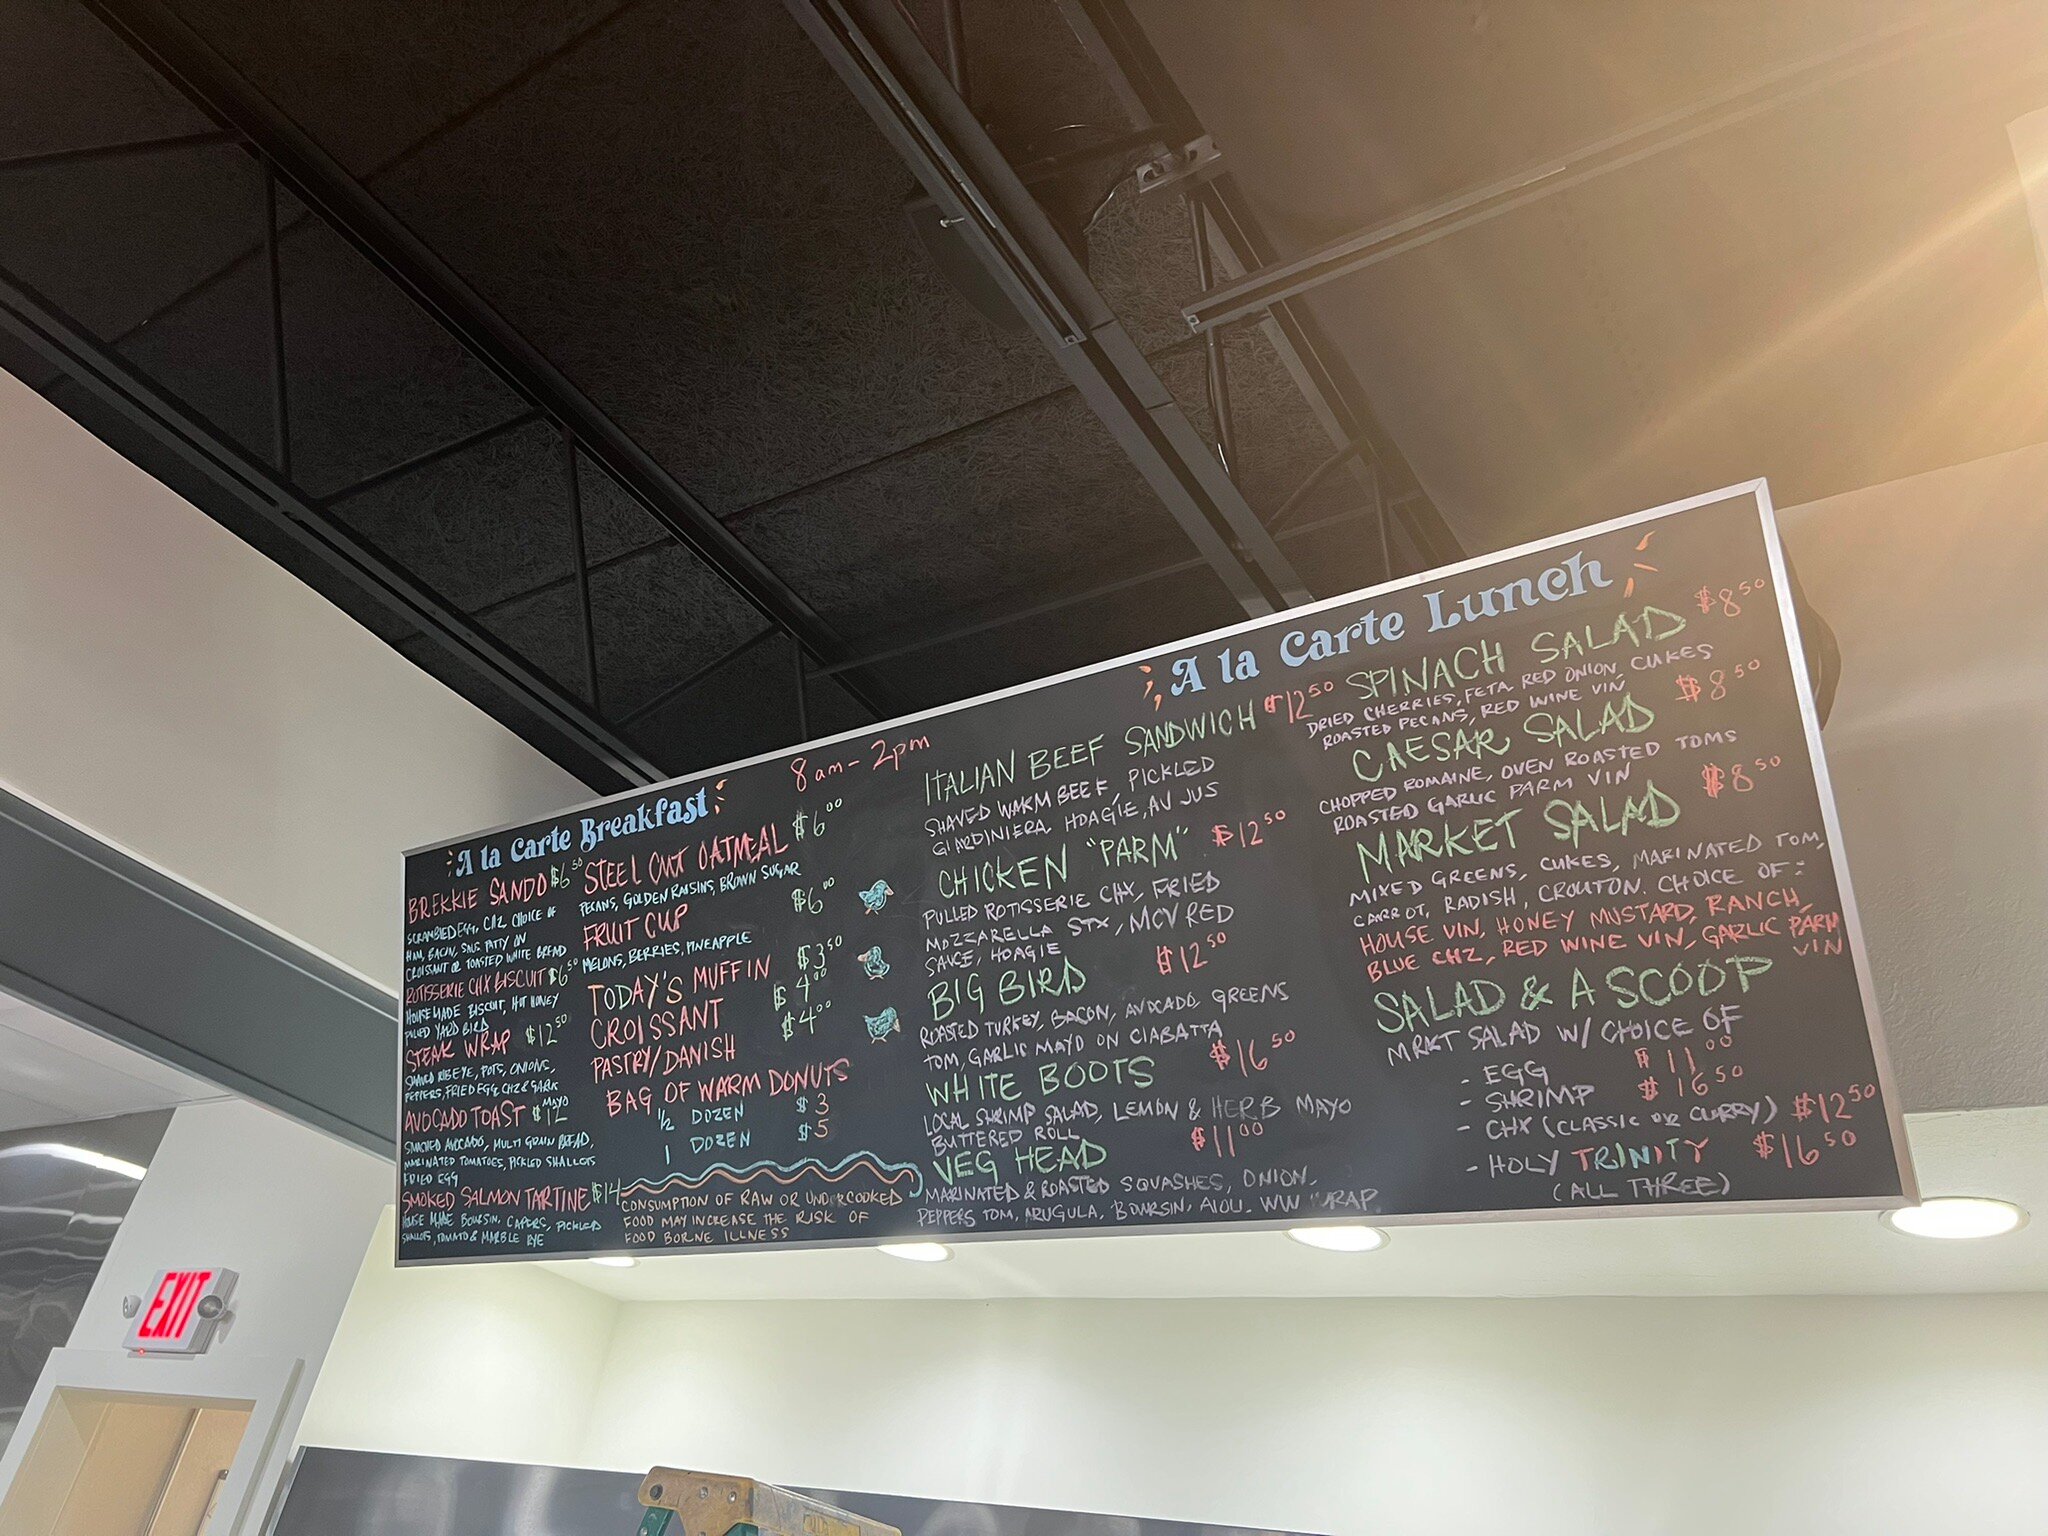 A la Carte Breakfast
8am - 2pm
BREKKIE SANDO $6.50
SCRAMBLED EGG, CHZ CHOICE OF
HAM, BACON, SSG PATTY ON
CROISSANT OR TOASTED WHITE BREAD
ROTISSERIE CHX BISCUIT $6.50
HOUSEMADE BISCUIT, HOT HONEY
PULLED YARD BIRD
STEAK WRAP $12.50
SHAVED RIBEYE, POTS, ONIONS,
PEPPERS, FRIED EGG, CHZ & GARLIC
MAYO
AVOCADO TOAST $12
SMASHED AVOCADO, MULTI GRAIN BREAD,
MARINATED TOMATOES, PICKLED SHALLOTS
FRIED EGG
SMOKED SALMON TARTINE $14
HOUSE MADE BOURSIN, CAPERS, PICKLED
SHALLOTS, TOMATO & MARBLE RYE
STEEL CUT OATMEAL $6.00
PECANS, GOLDEN RAISINS, BROWN SUGAR
FRUIT CUP $6.00
MELONS, BERRIES, PINEAPPLE
TODAY'S MUFFIN $3.50
CROISSANT $4.00
PASTRY/DANISH $4.00
BAG OF WARM DONUTS
1/2 DOZEN $3
1 DOZEN $5
CONSUMPTION OF RAW OR UNDERCOOKED
FOOD MAY INCREASE THE RISK OF
FOOD BORNE ILLNESS
A la Carte Lunch
ITALIAN BEEF SANDWICH $12.50
SHAVED WARM BEEF, PICKLED
GIARDINIERA, HOAGIE, AU JUS
CHICKEN "PARM" $12.50
PULLED ROTISSERIE CHX, FRIED
MOZZARELLA STX, MCV RED
SAUCE, HOAGIE
BIG BIRD $12.50
ROASTED TURKEY, BACON, AVOCADO, GREENS
TOM, GARLIC MAYO ON CIABATTA
WHITE BOOTS $16.50
LOCAL SHRIMP SALAD, LEMON & HERB MAYO
BUTTERED ROLL
VEG HEAD $11.00
MARINATED & ROASTED SQUASHES, ONION,
PEPPERS TOM, ARUGULA, BOURSIN, AIOLI. WW WRAP.
SPINACH SALAD $8.50
DRIED CHERRIES, FETA, RED ONION, CUKES
ROASTED PECANS, RED WINE VIN
CAESAR SALAD $8.50
CHOPPED ROMAINE, OVEN ROASTED TOMS
ROASTED GARLIC PARM VIN
MARKET SALAD $8.50
MIXED GREENS, CUKES, MARINATED TOM,
CARROT, RADISH, CROUTON. CHOICE OF:
HOUSE VIN, HONEY MUSTARD, RANCH,
BLUE CHZ, RED WINE VIN, GARLIC PARM
VIN
SALAD & A SCOOP
MRKT SALAD W/ CHOICE OF
- EGG $11.00
- SHRIMP $16.50
- CHX (CLASSIC OR CURRY) $12.50
- HOLY TRINITY $16.50
(ALL THREE)
EXIT